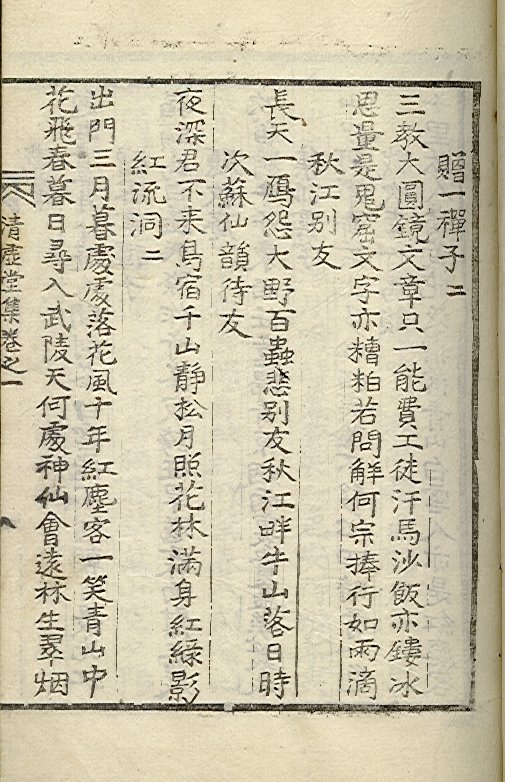 贈一禪子二
三敎大圓鏡文章只一能費工徒汗馬沙飯亦鏤冰
思量是鬼窟文字亦糟粕若問解何宗捧行如雨滴
秋江別友
長天一鴈怨大野百蟲悲別友秋江畔牛山落日時
次蘇仙韻待友
夜深君不来鳥宿千山靜松月照花林滿身紅綠影
紅流洞二
出門三月暮處處落花風千年紅塵客一笑青山中
花飛春暮日尋入武陵天何處神仙會遠林生翠烟
清虛堂集卷之一